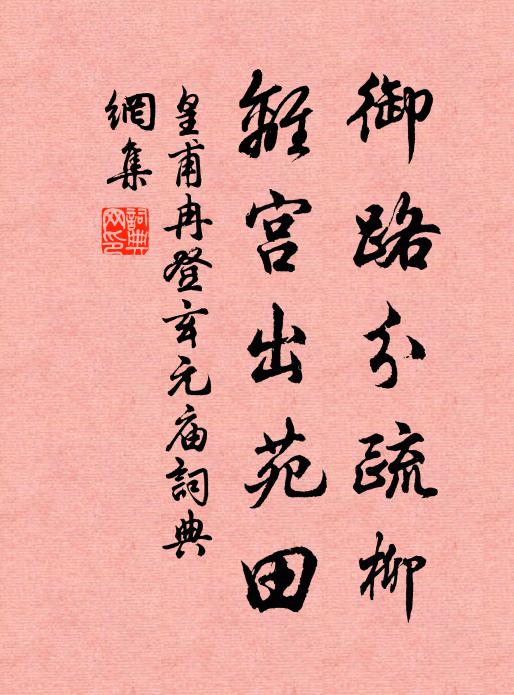 御路分疏柳
離宫出苑田
皇甫冉登玄元庙詞典
網集
詞典网印